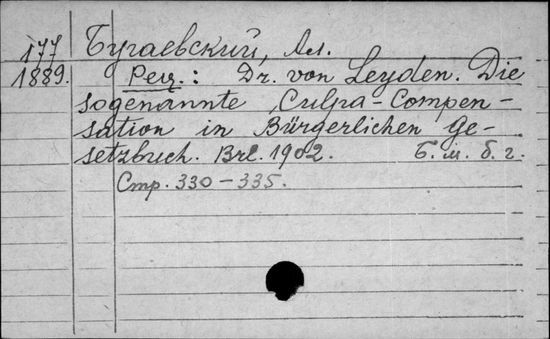 177
1889.
Бугаевский, Ал.
Рец.: Dr. von Leyden. Die
sogenannte Culpa-Compen-
sation in Bürgerlichen Ge-
setzbuch. Brl. 1902. Б. м. б. г.
Стр. 330-335.